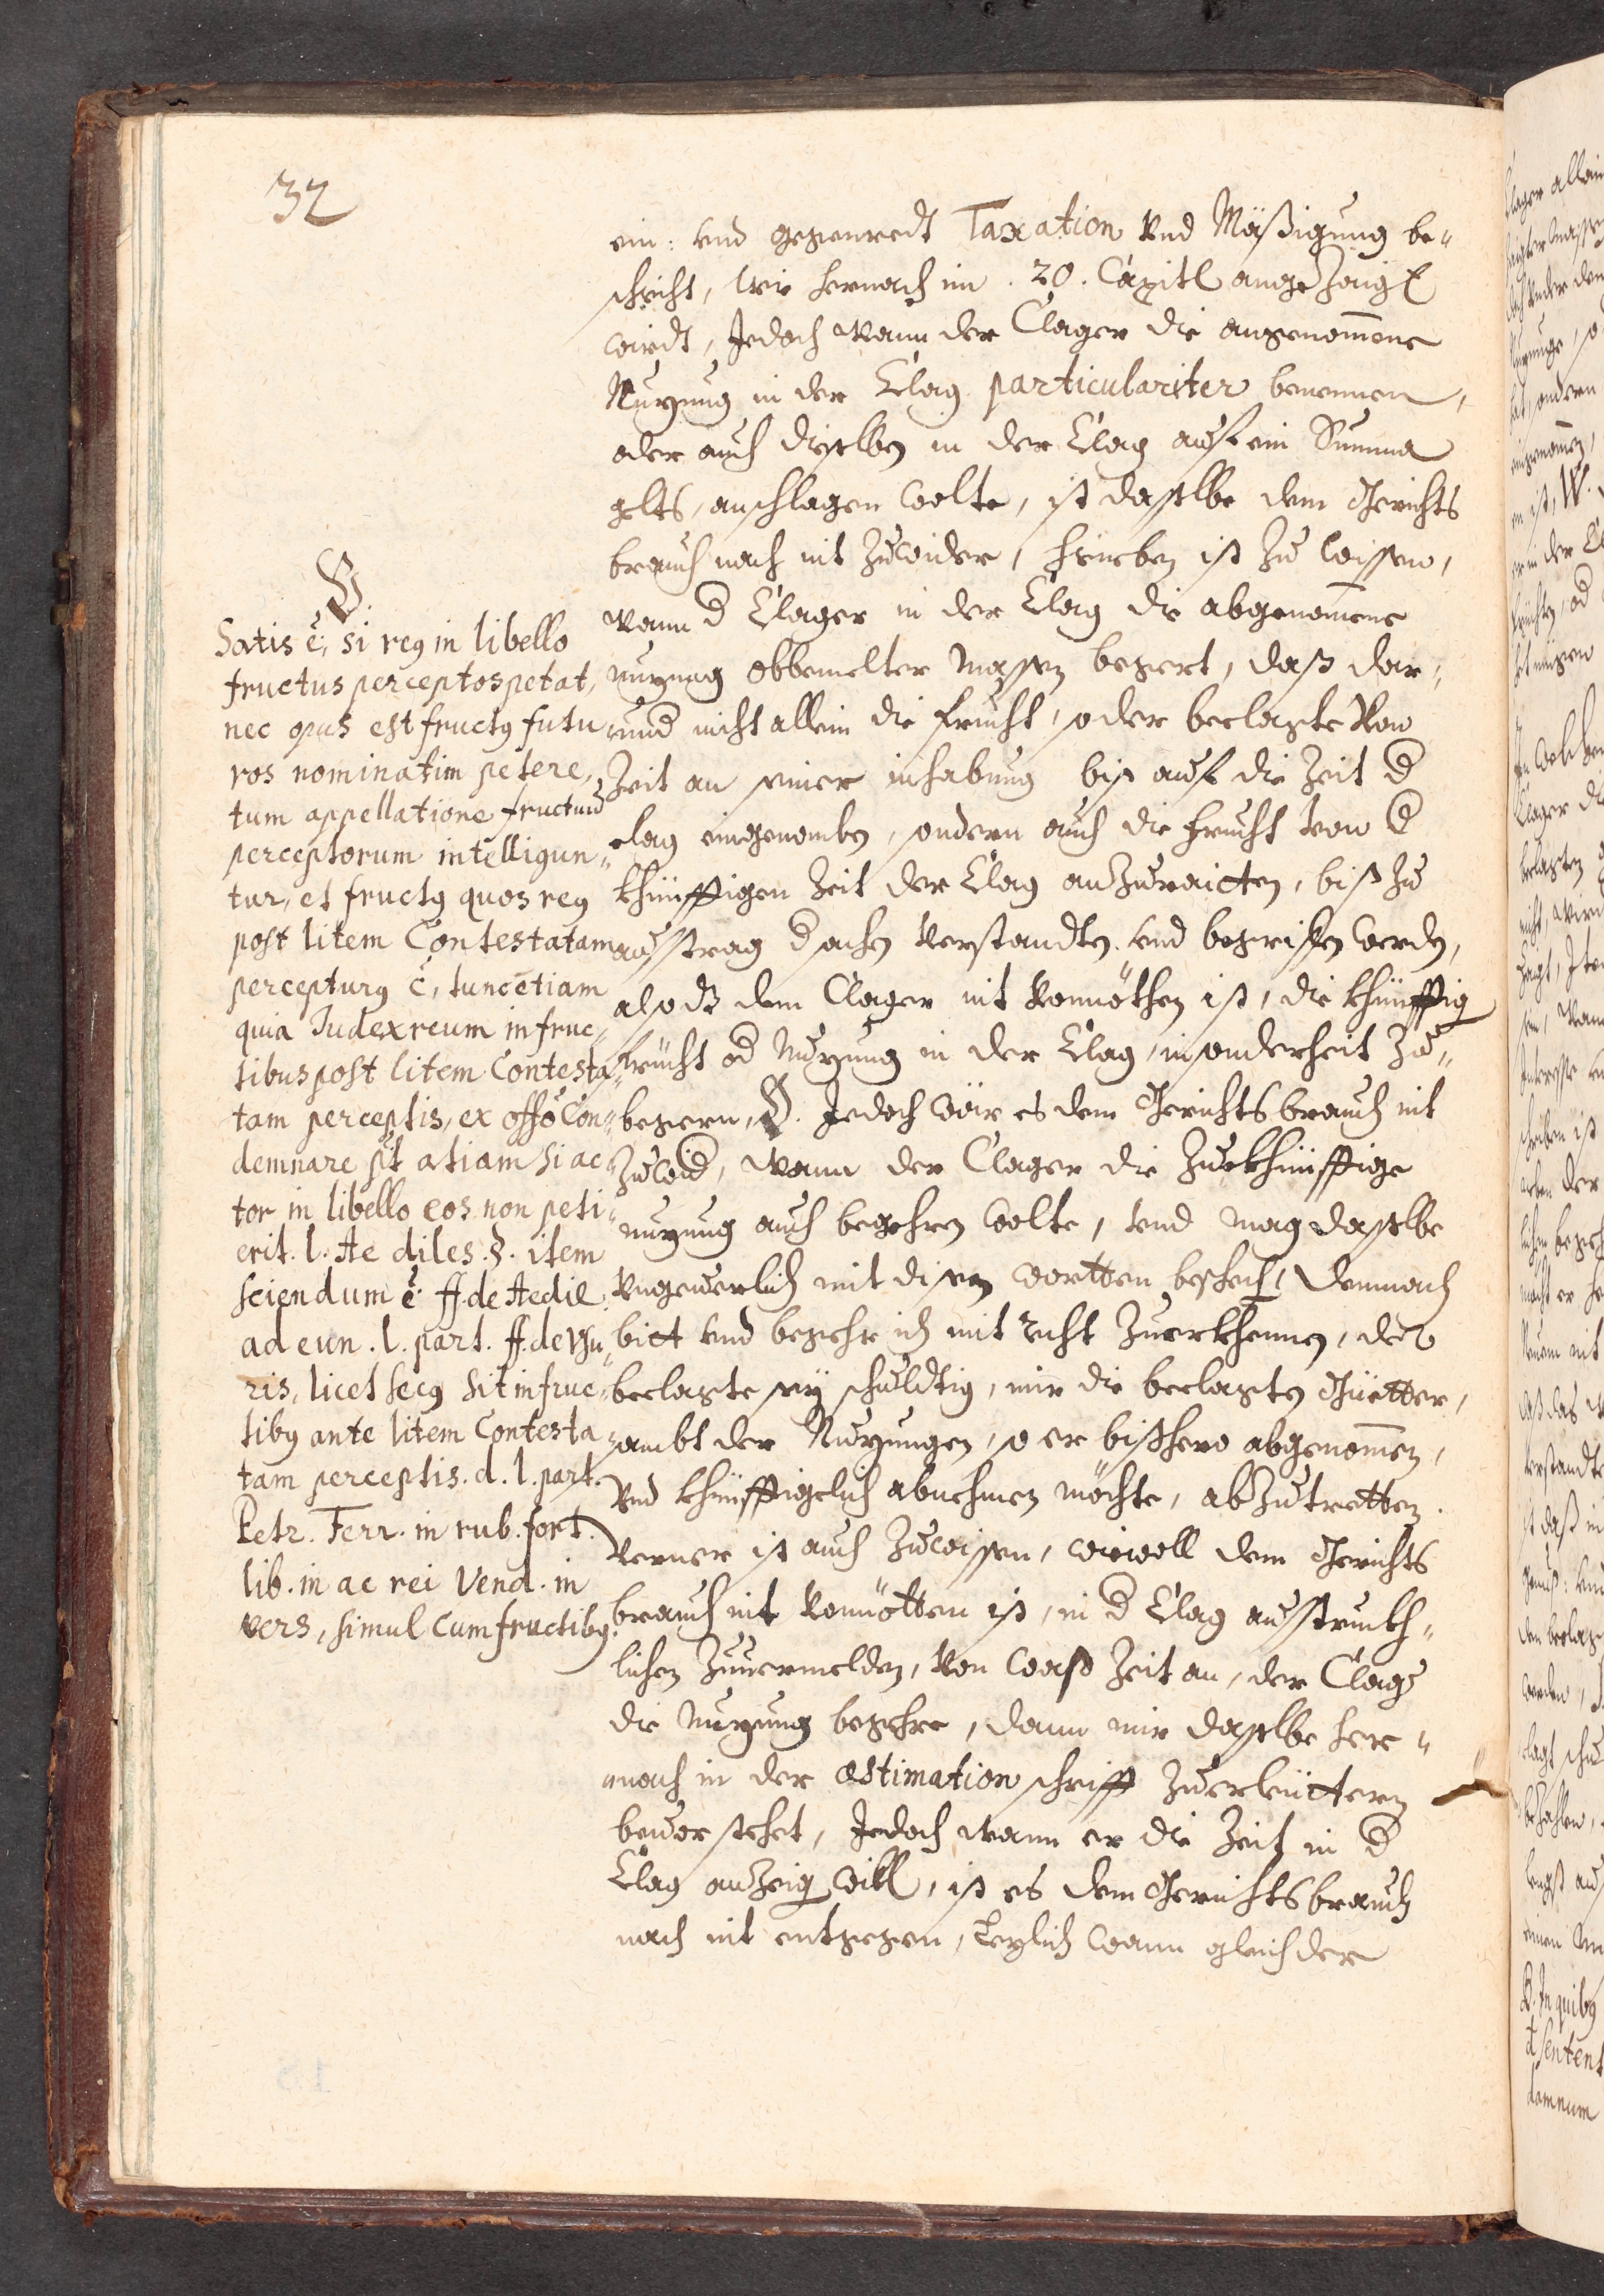 32
ein: und gegenredt Taxation Vnd Mäßigung be„
schicht, wie hernach im .20. Capitl angezeigt
wirdt, Jedoch wann der Clager die angenom̄ene
Nuzung in der Clag particulariter benennen,
oder auch dieselben in der Clag auf ein Summa
gelts, anschlagen wolte, ist dasselbe dem Gerichts
brauch nach nit zuwider, hieneben ist zu wissen,
wann d Clager in der Clag die abgenom̄ene
nuzung obbemelter massen begert, daß dar„
und nicht allein die frucht, so der beclagte Von
Zeit an seiner inhabung biß auf die Zeit d
clag eingenomben, sondern auch die frucht von d
khünfftigen Zeit der Clag anzuraitten, biß zu
austrag d sachen verstandten, und begriffen werden,
also dz dem Clager nit Vonnöthen ist, die khünfftig
frücht od Nuzung in der Clag, insonderheit zu„
begern, O. Jedoch wär es dem Gerichtsbrauch nit
zuwid, wann der Clager die zuekhünfftige
nuzung auch begehren wolte, und mag dasselbe
Vngeverlich mit disen wortten beschech, demnach
bitt und begehr ich mit recht Zuerkhennen, der
beclagte sey schuldtig, mir die beclagten Güetter,
sambt der Nuzungen, so er bißhero abgenom̄en,
Vnd khünfftigclich abnehmen möchte, abzutretten.
Verner ist auch zuwissen, wiewoll dem Gerichts
brauch nit Vonnötten ist, in d Clag ausstruckh„
lichen zuvermelden, Von waß Zeit an, der Clager
die Nuzung begehre, dann mir dasselbe her„
„nach in der æstimation schrifft zuerleuttern
bevor stehet, Jedoch wann er die Zeit in d
Clag anzeigen will, ist es dem Gerichtsbrauch
nach nit entgegen, Lezlich wann gleich der
O.
Satis ē, si reꝯ in libello
fructus perceptos petat,
nec opus est fructꝯ futu
ros nominatim petere,
tum appellatione fructuū
perceptorum intelligun„
tur, et fructꝯ quos reꝯ
post litem Contestatam
percepturꝯ ē, tunc etiam
quia Judex reum in fruc„
tibus post litem Contesta„
tam perceptis, ex offō Con„
demnare pt̄ atiam si ac
tor in libello eos non peti„
erit. l. Ae diles .§. item
sciendum ē ff. de Aedil.
ad eun. l. part. ff. de Vsu„
ris, licet secꝯ sit in fruc„
tibꝯ ante litem Contesta„
tam perceptis. d. l. part.
Petr. Ferr. in rub. fort.
lib. in ac rei Vend. in
vers, simul cum fructibꝯ.